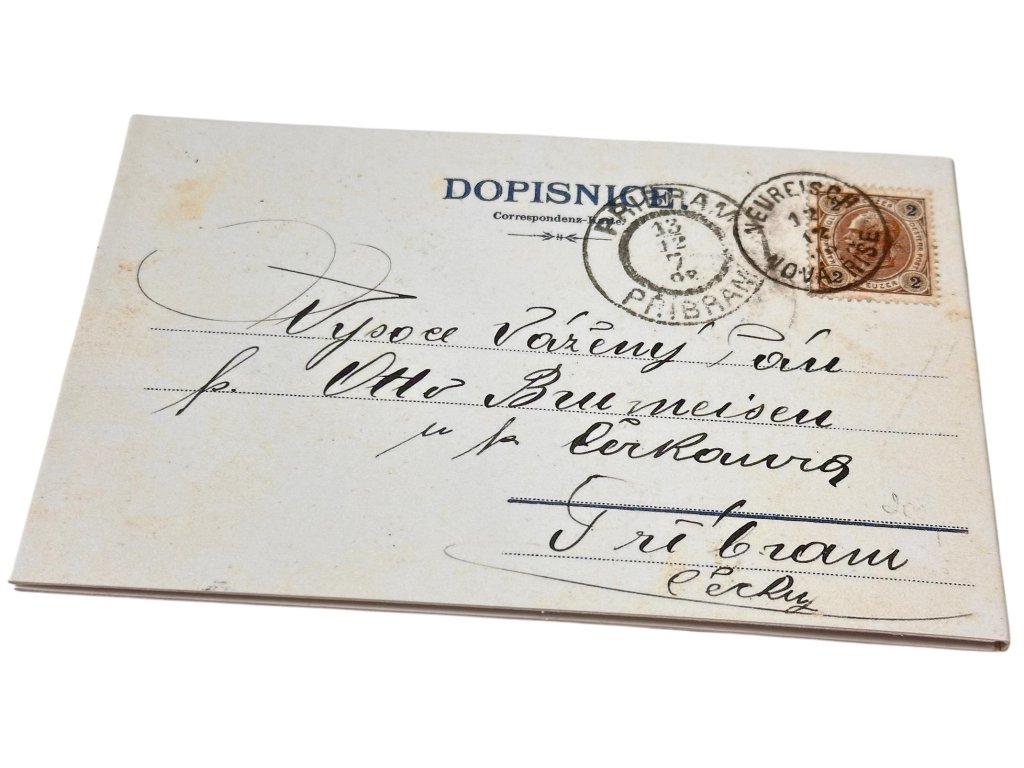 DOPISNICE.
Correspondenz-Karte.
PŘIBRAM
13
12
7
98
PŘIBRAM
NEUREISCH
12
12
NOVÁ ŘÍŠE
2 2
2 KREUZER 2
Vysoce Vážený Pán
p. Otto Brumeisen
u p
Příbram
Čechy